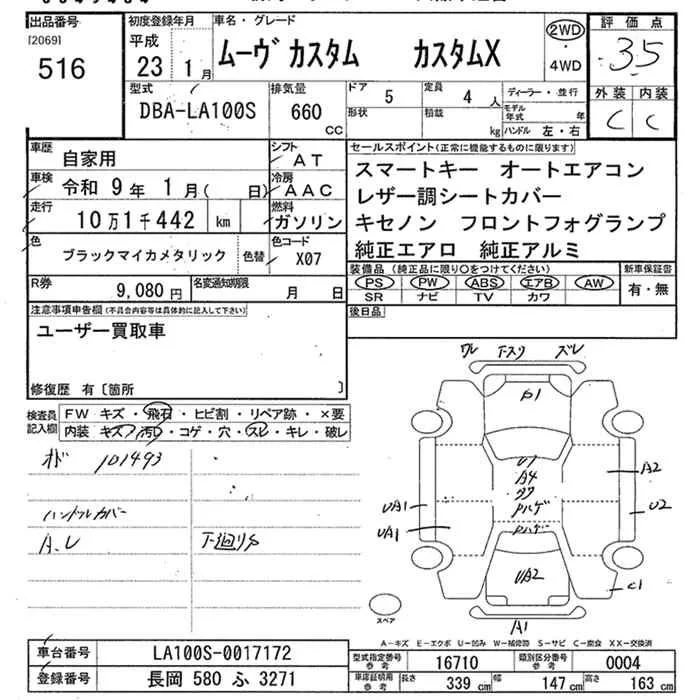 出品番号
[2069]
516
初度登録年月
平成
23 1 月
車名・グレード
ムーヴ カスタム カスタムX
2WD
・
4WD
評価点
3.5
外装 内装
C C
型式
DBA-LA100S
排気量
660
CC
ドア
5
定員
4 人
形状
積載
kg
ディーラー・並行
モデル年式
年
ハンドル 左・右
車歴
自家用
シフト
AT
車検
令和 9 年 1 月( 日)
冷房
AAC
走行
10万1千442 km
燃料
ガソリン
色
ブラックマイカメタリック
色替
色コード
X07
R券
9,080 円
名変通知期限
月 日
セールスポイント(正常に機能するものに限ります)
スマートキー オートエアコン
レザー調シートカバー
キセノン フロントフォグランプ
純正エアロ 純正アルミ
装備品 (純正品に限り○をつけてください)
PS PW ABS エアB AW
SR ナビ TV カワ
新車保証書
有・無
後日品
注意事項申告欄(不具合内容等は具体的に記入して下さい)
ユーザー買取車
修復歴 有〔箇所 〕
検査員
記入欄
FW キズ・飛石・ヒビ割・リペア跡・×要
内装・キズ・汚レ・コゲ・穴・スレ・キレ・破レ
オド 101493
ハンドルカバー
A.L
下廻りサ
ワレ 下スリ ズレ
P1
U1
A4
Pハゲ
Pハゲ
UA2
A2
U2
UA1
UA1
C1
A1
スペア
A-キズ E-エクボ U-凹み W-補修跡 S-サビ C-腐食 XX-交換済
車台番号
LA100S-0017172
登録番号
長岡 580 ふ 3271
型式指定番号
参考
16710
類別区分番号
参考
0004
車庫証明用
参考
長さ
339 cm
幅
147 cm
高さ
163 cm